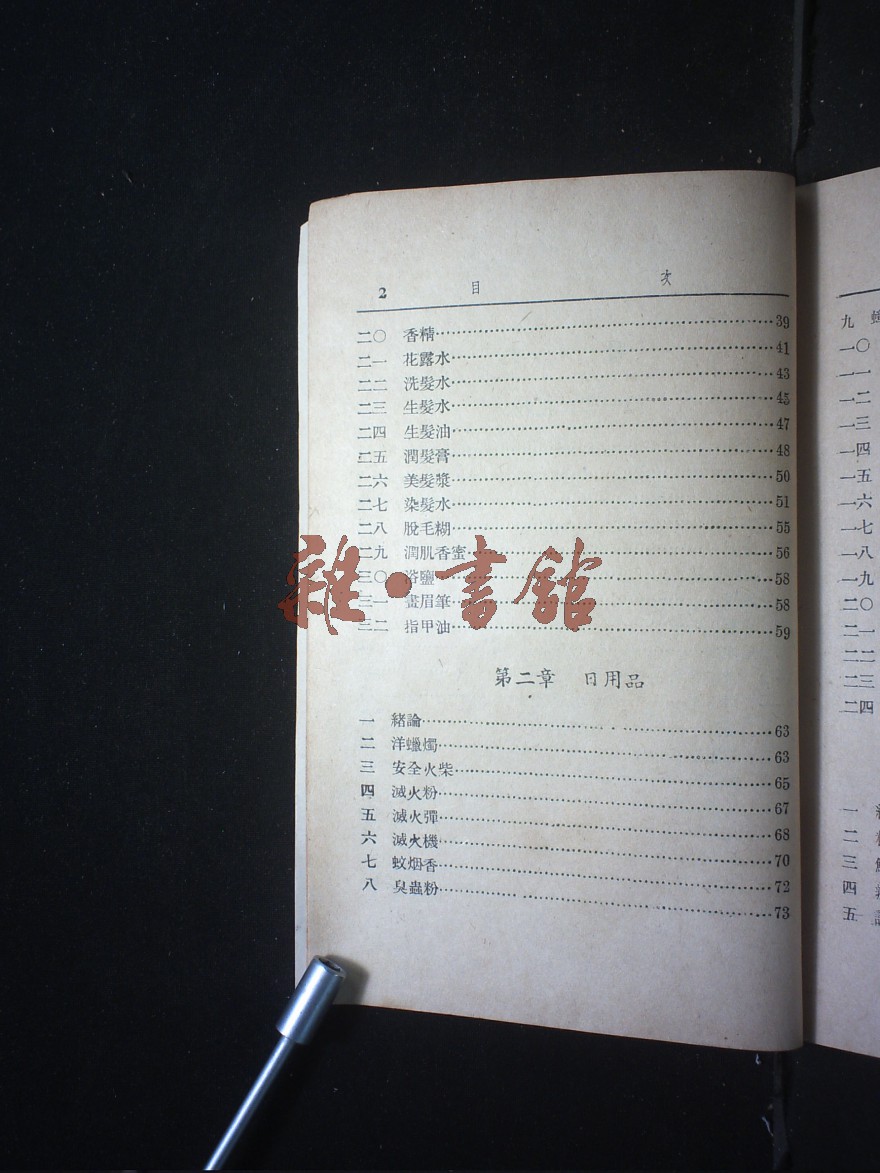 2 目 次
二〇 香精 39
二一 花露水 41
二二 洗髮水 43
二三 生髮水 45
二四 生髮油 47
二五 潤髮膏 48
二六 美髮漿 50
二七 染髮水 51
二八 脫毛糊 55
二九 潤肌香蜜 56
三〇 浴鹽 58
三一 畫眉筆 58
三二 指甲油 59
第二章 日用品
一 緒論 63
二 洋蠟燭 63
三 安全火柴 65
四 滅火粉 67
五 滅火彈 68
六 滅火機 70
七 蚊烟香 72
八 臭蟲粉 73
雜·書館
九
一〇
一一
一二
一三
一四
一五
一六
一七
一八
一九
二〇
二一
二二
二三
二四
一
二
三
四
五